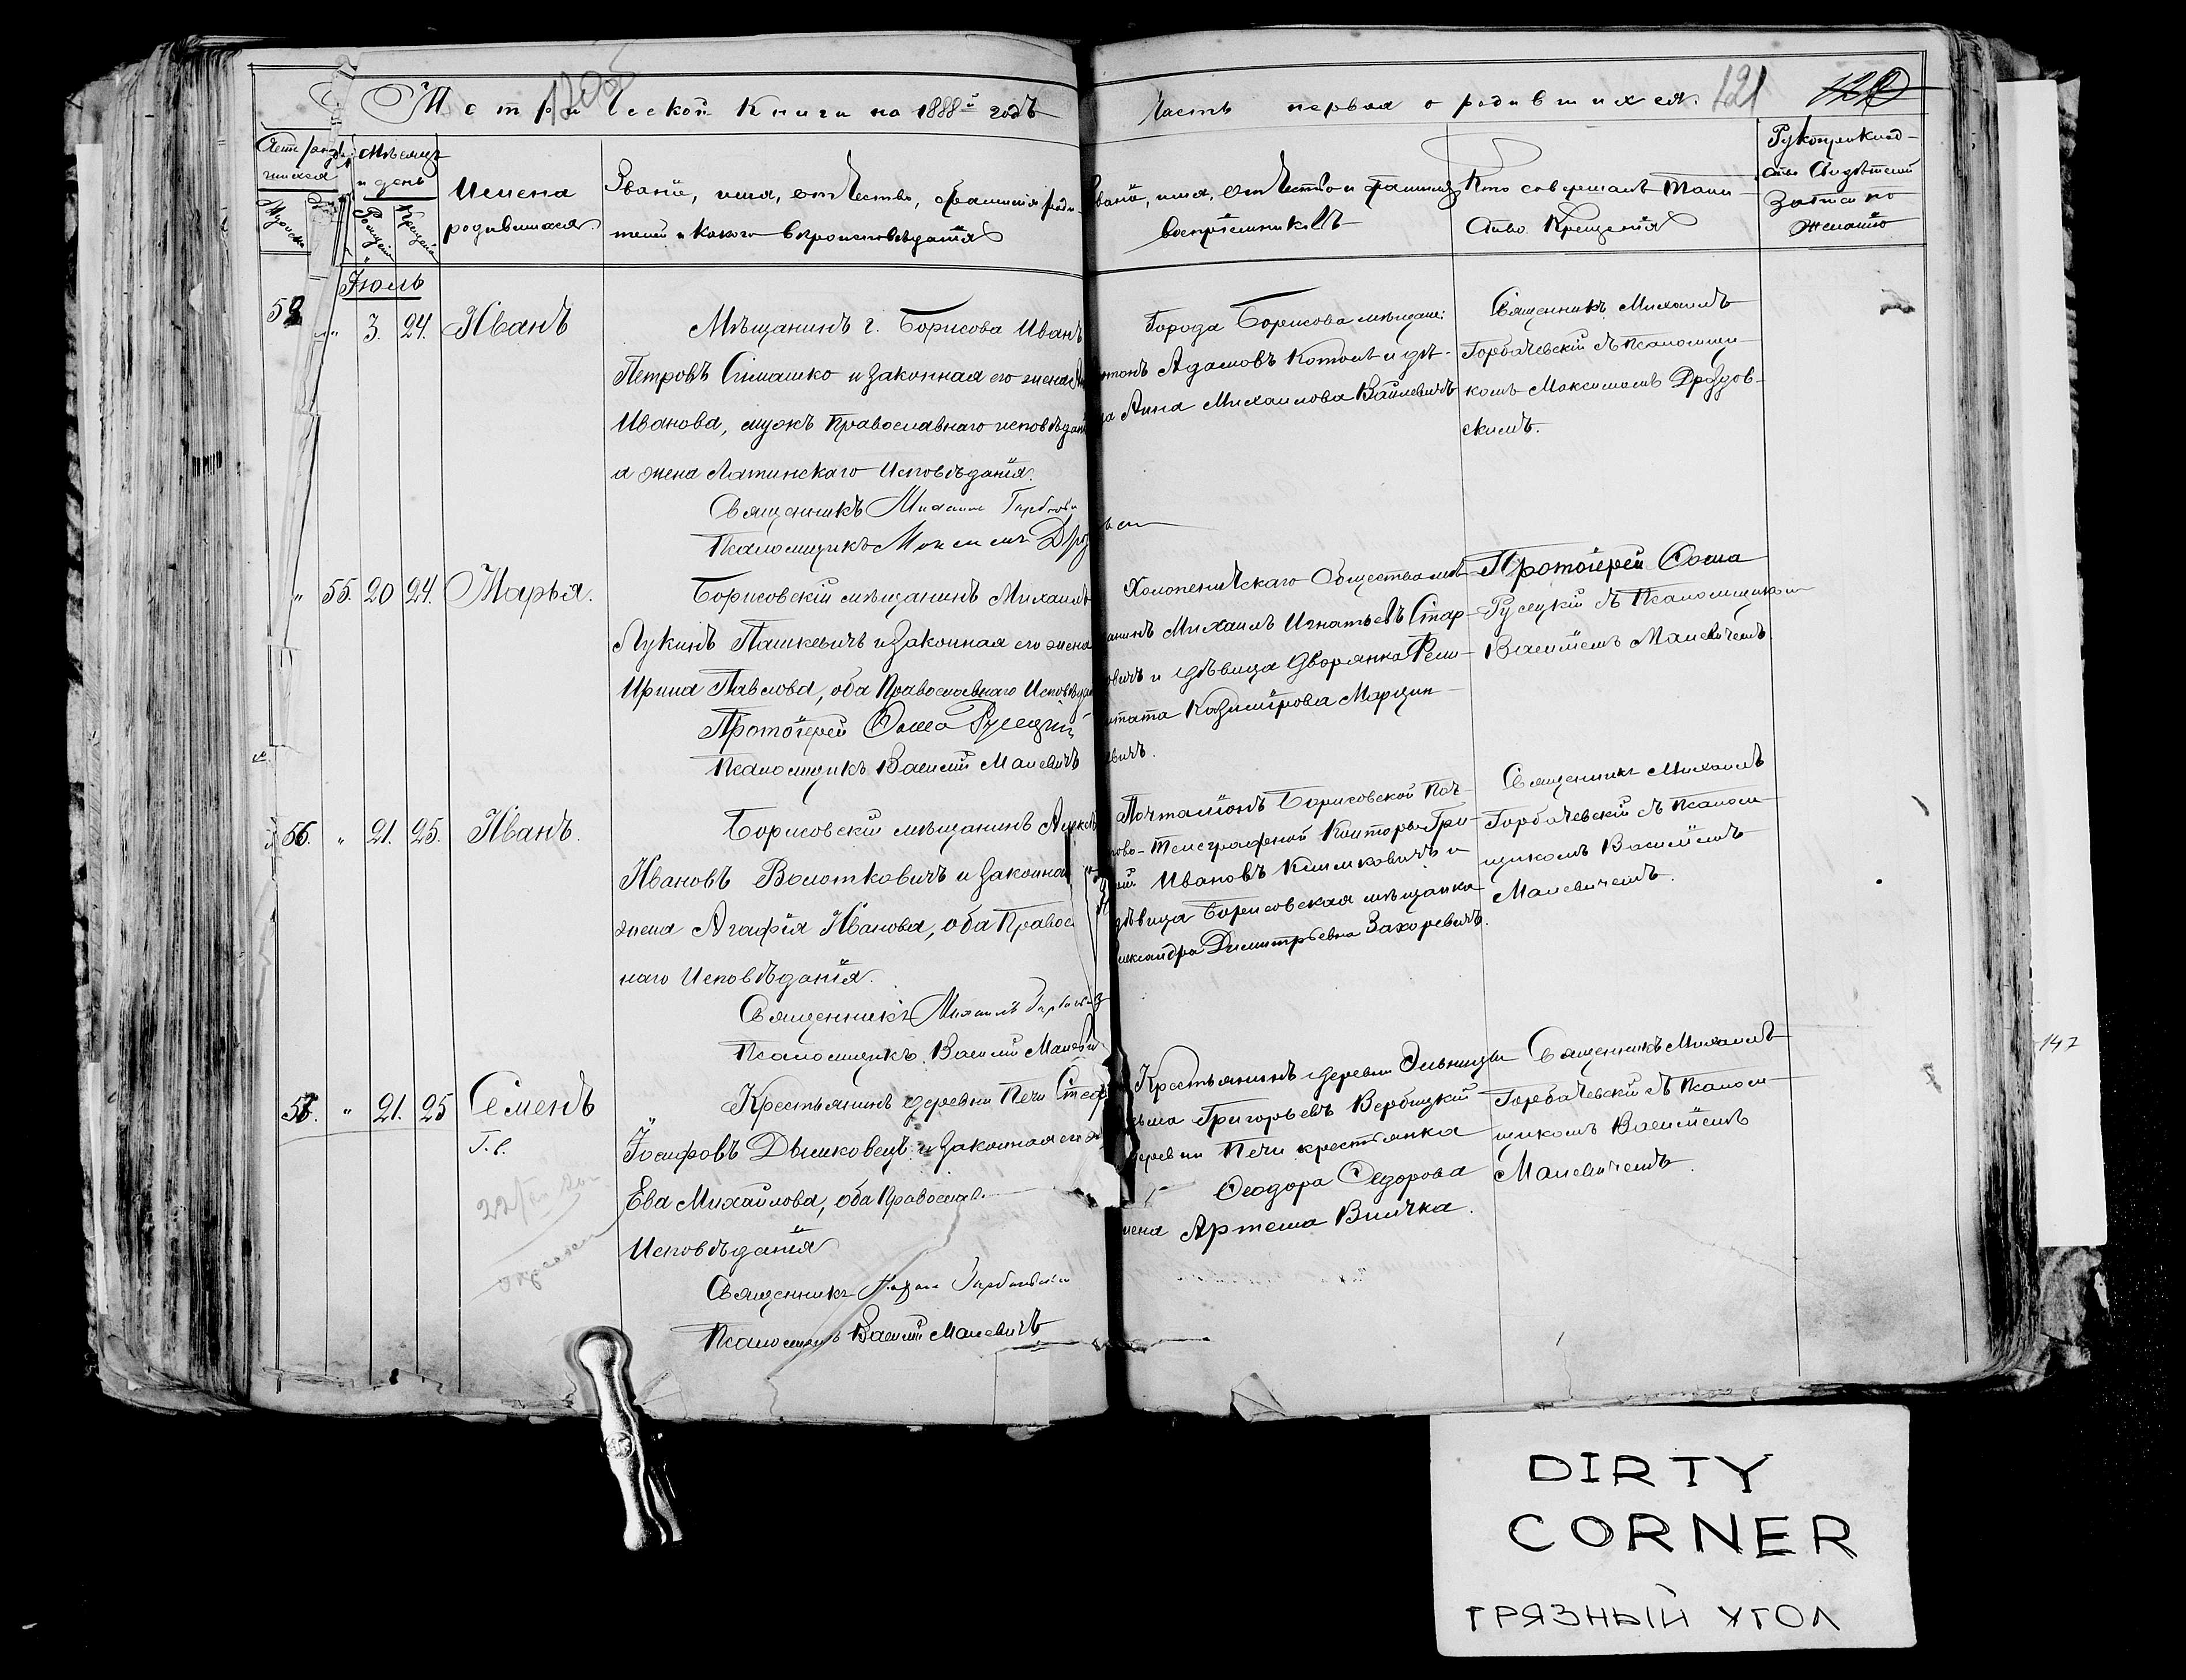 Метрической Книги на 1888й годъ
Часть первая о родившихся.
121
Мѣсяцъ
и день
Имена
родившихся
Званіе, имя, отчество, фамилія роди-
телей и какого вѣроисповѣданія
Званіе, имя, отчество и фамилія
воспріемниковъ
Кто совершалъ Таин-
ство Крещенія
Рукоприклад-
ство Свидѣтелей
записи по
желанію
Іюль
3. 24. Иванъ
Мѣщанинъ г. Борисова Иванъ
Петровъ Симашко и законная его жена
Иванова, мужъ Православнаго исповѣданія
а жена Латинскаго Исповѣданія.
Священникъ Михаилъ
Псаломщикъ Максимъ
Города Борисова мѣщан:
Адамовъ и дѣ-
Анна Михаилова
Священникъ Михаилъ
Горбачевскій съ псаломщи-
комъ Максимомъ Дроздов-
скимъ.
" 55. 20 24. Марья.
Борисовскій мѣщанинъ Михаилъ
Лукинъ Пашкевичъ и законная его жена
Ирина Павлова, оба Православнаго Исповѣдан
Протоіерей Ѳома Русецкій
Псаломщикъ Василій Малевичъ
Холопеничскаго Общества мѣщ
анинъ Михаилъ Игнатьевъ Стар-
овичъ и дѣвица дворянка
Казимірова Марцин-
евичъ.
Протоіерей Ѳома
Русецкій съ Псаломщикомъ
Василіемъ Малевичемъ.
56. " 21. 25. Иванъ.
Борисовскій мѣщанинъ
Ивановъ Волотковичъ и законная
жена Агафія Иванова, оба Правос
наго Исповѣданія.
Священникъ Михаилъ
Псаломщикъ Василій
Почталіонъ Борисовской Поч-
тово-Телеграфной Конторы Гри-
Ивановъ Климковичъ и
дѣвица Борисовская мѣщанка
лександра Димитріевна Захоревичъ.
Священникъ Михаилъ
Горбачевскій съ псалом-
щикомъ Василіемъ
Малевичемъ.
" 21. 25 Семенъ
Крестьянинъ деревни Печи Стеф
Іосифовъ Дышковецъ и законная его
Ева Михайлова, оба Православ.
Исповѣданія
Священникъ
Псаломщикъ Василій Малевичъ
Крестьянинъ деревни
зьма Григорьевъ Вербицкій
деревни Печи крестьянка
Ѳеодора Ѳедорова
жена Артема
Священникъ Михаилъ
Горбачевскій съ псалом-
щикомъ Василіемъ
Малевичемъ.
147
DIRTY
CORNER
ГРЯЗНЫЙ УГОЛ